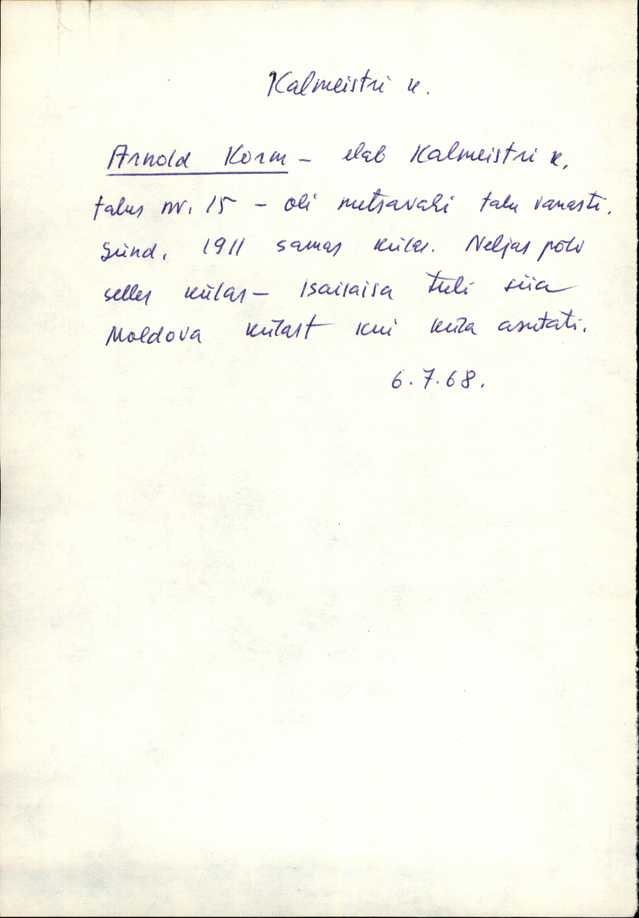 Kalmeistri k.
Arnold Korm – elab Kalmeistri k.
talus nr. 15 – oli metsavahi talu vanasti.
Sünd. 1911 samas külas. Neljas põlv
selles külas – isaisaisa tuli siia
Moldova külast kui küla asutati.
6.7.68.